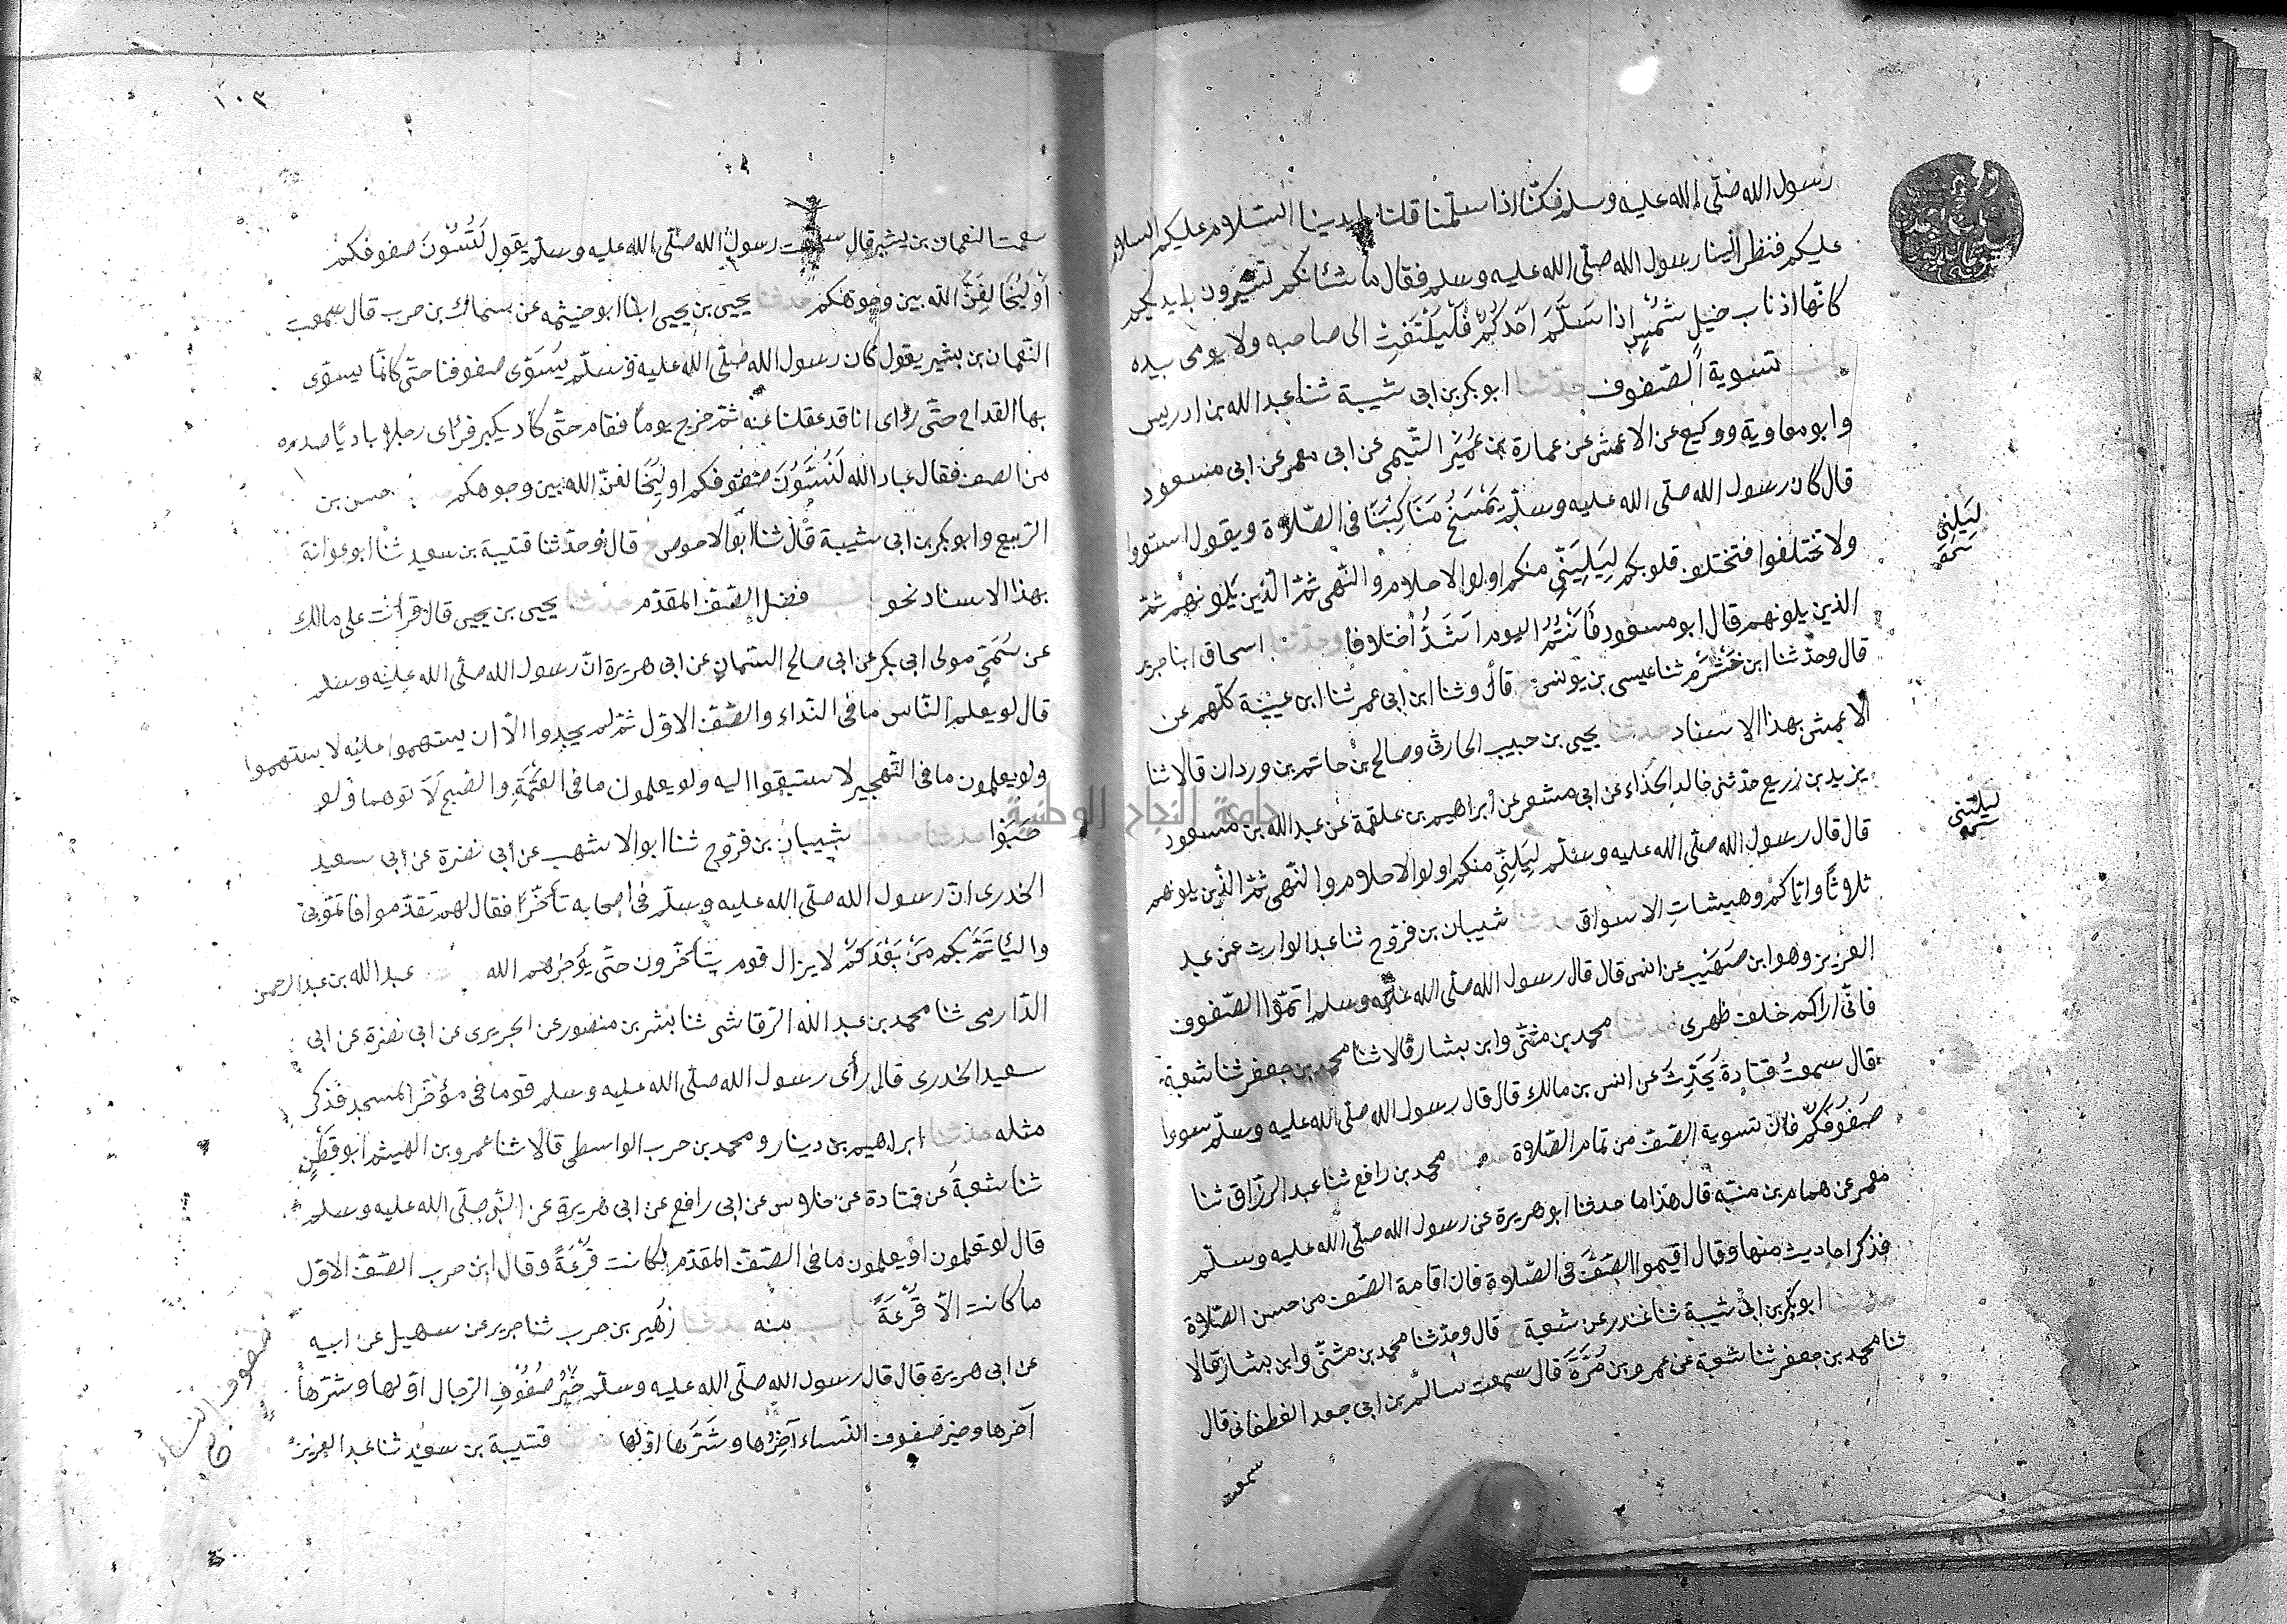 رسول الله صلّى الله عليه وسلم فكنّا اذا سلّمنا قلنا بايدينا السّلام عليكم السلام
عليكم فنظر الينا رسول الله صلّى الله عليه وسلم فقال ما شأنكم تشيرون بايديكم
كانّها اذناب خيل شُمُسٍ اذا سَلَّمَ احَدكُمْ فَلْيَلْتَفِتِ الى صاحبه ولا يومى بيده
باب تسوية الصّفوف حدّثنا ابو بكر بن ابى شيبة ثنا عبد الله بن ادريس
وابو معاوية ووكيع عن الاعمش عن عمارة بن عُمَيْرِ التّيمى عن ابى معمر عن ابى مسعود
قال كان رسول الله صلّى الله عليه وسلّم يَمْسَحُ مَنَاكِبَنَا فى الصّلاة ويقول استووا
ولا تختلفوا فتختلف قلوبكم لِيَلِيَنّى منكم اولوا الاحلام والنّهى ثمّ الّذين يَلُونهم ثمّ
الذين يلونهم قال ابو مسعود فَأنْتُمُ اليوم اَشَدُّ اختلافا وحدّثنا اسحاق ابنا جرير
قال وحدّثنا ابن خَشْرَمٍ ثنا عيسى بن يونس ح قال وثنا ابن ابى عمر ثنا ابن عيينة كلّهم عن
الاعمش بهذا الاسناد حدثنا يحيى بن حبيب الحارثى وصالح بن حاتم بن وردان قالا ثنا
يزيد بن زريع حدّثنى خالد الحذّاء عن ابى معشر عن ابراهيم بن علقمة عن عبد الله بن مسعود
قال قال رسول الله صلّى الله عليه وسلّم لِيَلِنّى منكم اولوا الاحلام والنّهى ثمّ الذّين يلونهم
ثلاثًا وايّاكم وهيشاتِ الاسواق حدثنا شيبان بن فرّوح ثنا عبد الوارث عن عبد
العزيز وهو ابن صُهَيْبٍ عن انس قال قال رسول الله صلّى الله عليه وسلم اتمّوا الصّفوف
فانّى اراكم خلف ظهرى حدثنا محمد بن مثنّى وابن بشار قالا ثنا محمد بن جعفر ثنا شعبة
قال سمعتُ قتادة يُحَدِّث عن انس بن مالك قال قال رسول الله صلّى الله عليه وسلّم سووا
صُفوفكُمْ فانّ تسوية الصّفّ من تمام الصّلاة حدثنا محمد بن رافع ثنا عبد الرزّاق ثنا
معمر عن همام بن منبّه قال هذا ما حدثنا ابو هريرة عن رسول الله صلّى الله عليه وسلّم
فذكر احاديث منها وقال اقيموا الصّفّ فى الصّلاة فان اقامة الصّف من حسن الصّلاة
حدثنا ابو بكر بن ابى شيبة ثنا غندر عن شعبة ح قال وحدّثنا محمد بن مثنّى وابن بشار قالا
ثنا محمد بن جعفر ثنا شعبة عن عمرو بن مُرَّةَ قال سمعت سالم بن ابى جعد الغطفانى قال
سمعت
لِيَلِنِى
صَحّ
ليلنّى
١٠٣
سمعت النعمان بن بشير قال سمعت رسول الله صلّى الله عليه وسلّم يقول لَتُسَوُّنَ صفوفكم
أوْ لَيُخَالِفَنَّ الله بين وجوهكم حدثنا يحيى بن يحيى ابنا ابو خيثمه عن سماك بن حرب قال سمعت
النّعمان بن بشير يقول كان رسول الله صلّى الله عليه وسلّم يُسَوّى صفوفنا حتى كانّما يسوّى
بها القداح حتّى رأى انا قد عقلنا عنه ثمّ خرج يومًا فقام حتّى كاد يكبر فرأى رجلا باديًا صدره
من الصف فقال عباد الله لَتُسَوُّنَ صفوفكم او لَيُخَالفنّ الله بين وجوهكم حسن بن
الربيع وابو بكر بن ابى شيبة قال ثنا ابو الاحوص ح قال وحدّثنا قتيبة بن سعيد ثنا ابو عوانة
بهذا الاسناد نحو باب فضل الصّفّ المقدّم حدثنا يحيى بن يحيى قال قرأت على مالك
عن سُمَىٍّ مولى ابى بكر عن ابى صالح السّمان عن ابى هريرة انّ رسول الله صلّى الله عليه وسلم
قال لو يعلم النّاس ما فى النّداء والصّفّ الاوّل ثمّ لم يجدوا الّا ان يستهموا عليه لاستهموا
ولو يعلمون ما فى التّهجير لاستبقوا اليه ولو يعلمون ما فى العَتَمَةِ والصّبح لَاَتوهما ولو
حَبْوًا حدثنا شيبان بن فرّوح ثنا ابو الاشهب عن أبى نضرة عن ابى سعيد
الخدرى انّ رسول الله صلّى الله عليه وسلّم فى اصحابه تأخّرًا فقال لهم تقدّموا فاتمّوا بى
واليأتَمَّ بكم مَنْ بَعْدَكُمْ لا يزال قوم يتأخّرون حتّى يؤخرهم الله عبد الله بن عبد الرحمن
الدّارمى ثنا محمد بن عبد الله الرّقاشى ثنا بشر بن منصور عن الجريرى عن ابى نضرة عن ابى
سعيد الخدرى قال رأى رسول الله صلّى الله عليه وسلم قوما فى مؤخّر المسجد فذكر
مثله حدثنا ابراهيم بن دينار ومحمد بن حرب الواسطى قالا ثنا عمرو بن الهيثم ابو قَطَنٍ
ثنا شعبة عن قتادة عن خلاس عن ابى رافع عن ابى هريرة عن النّبى صلّى الله عليه وسلم
قال لو تعلمون او يعلمون ما فى الصّفّ المقدّم لكانت قُرْعَةً وقال ابن حرب الصّفّ الاوّل
ما كانت الّا قُرْعَةً باب منه حدثنا زهير بن حرب ثنا جرير عن سهيل عن ابيه
عن ابى هريرة قال قال رسول الله صلّى الله عليه وسلّم خَيْرُ صُفُوفِ الرّجال اوّلها وشرّها
آخرها وخير صفوف النّساء آخِرُها وشَرّها اوّلها قتيبة بن سعيد ثنا عبد العزيز
صفوف النساء
جامعة النجاح الوطنية